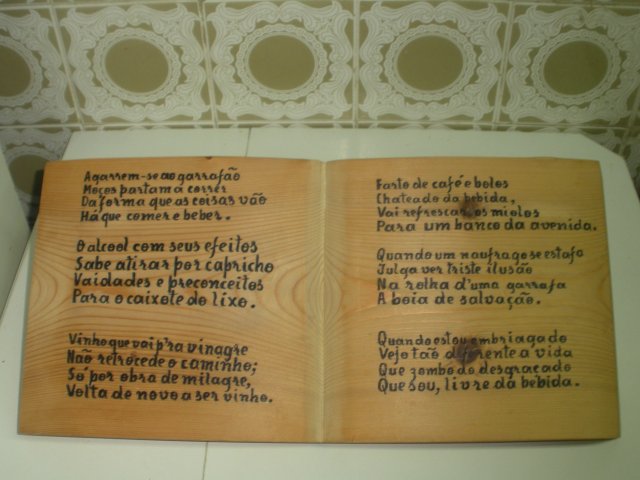 Agarrem-se ao garrafão
Moços partam a correr
Da forma que as coisas vão
Há que comer e beber.
O alcool com seus efeitos
Sabe atirar por capricho
Vaidades e preconceitos
Para o caixote do lixo.
Vinho que vai p'ra vinagre
Não retrocede o caminho;
Só por obra de milagre,
Volta de novo a ser vinho.
Farto de café e bolos
Chateado da bebida,
Vai refrescar os miolos
Para um banco da avenida.
Quando um naufrago se estafa
Julga ver triste ilusão
Na rolha d'uma garrafa
A boia de salvação.
Quando estou embriagado
Vejo tão diferente a vida
Que zombo do desgraçado
Que sou, livre da bebida.